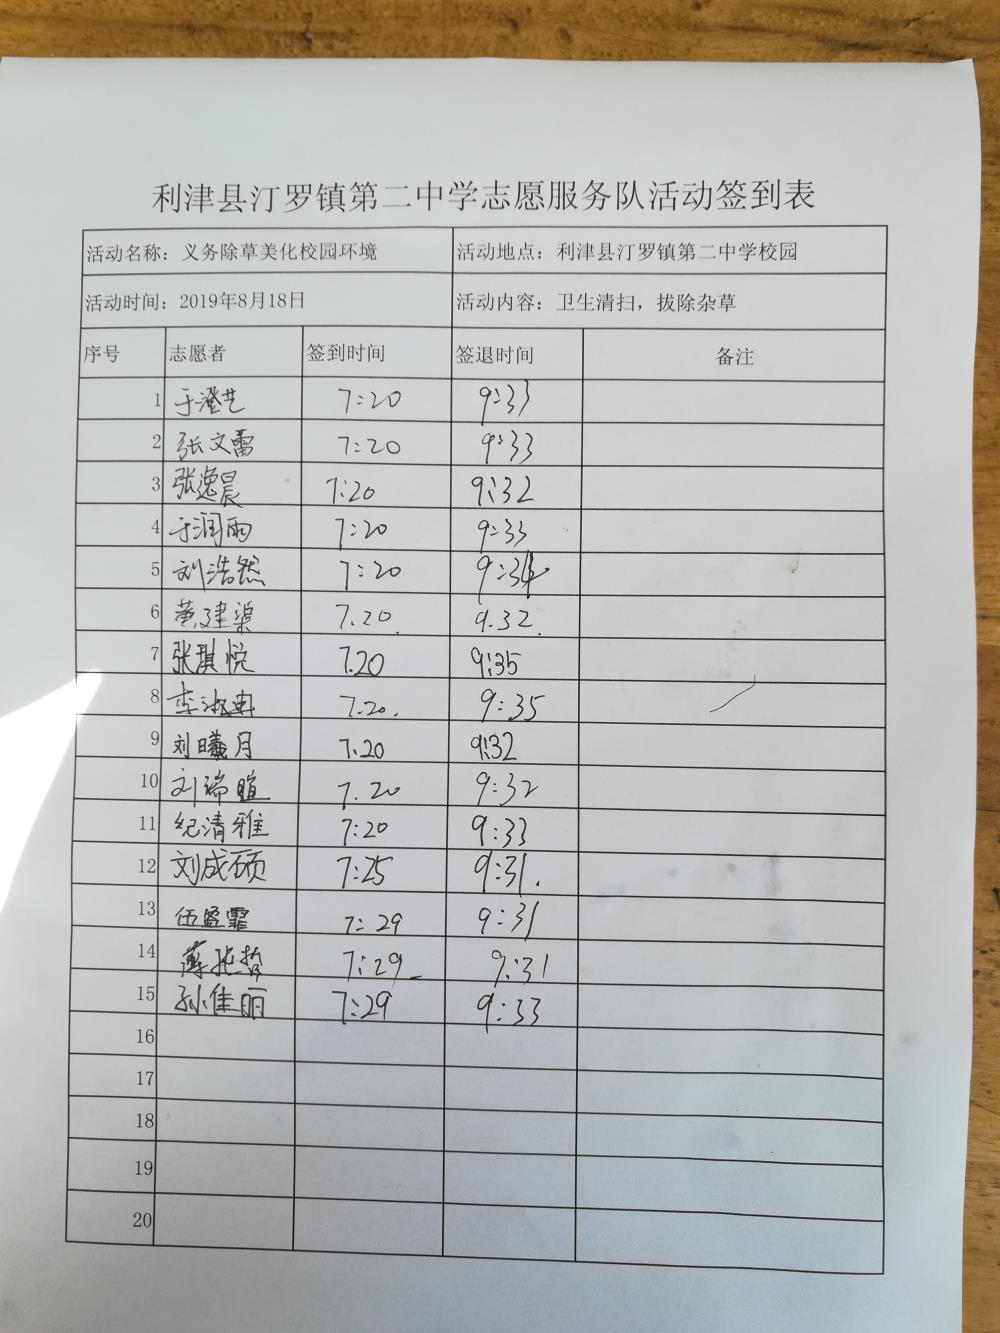 利津县汀罗镇第二中学志愿服务队活动签到表
活动名称：义务除草美化校园环境 活动地点：利津县汀罗镇第二中学校园
活动时间：2019年8月18日 活动内容：卫生清扫，拔除杂草
序号 志愿者 签到时间 签退时间 备注
1 于澄艺 7:20 9:33
2 张文蕾 7:20 9:33
3 张逸晨 7:20 9:32
4 于润雨 7:20 9:33
5 刘浩然 7:20
6 黄建渠 7.20. 9.32.
7 张琪悦 7.20 9:35
8 李淑冉 7:20. 9:35
9 刘曦月 7:20 9:32
10 刘瑞暄 7.20 9:32
11 纪清雅 7:20 9:33
12 刘成硕 7:25 9:31.
13 伍盛霏 7:29 9:31
14 7:29 9:31
15 孙佳丽 7:29 9:33
16
17
18
19
20